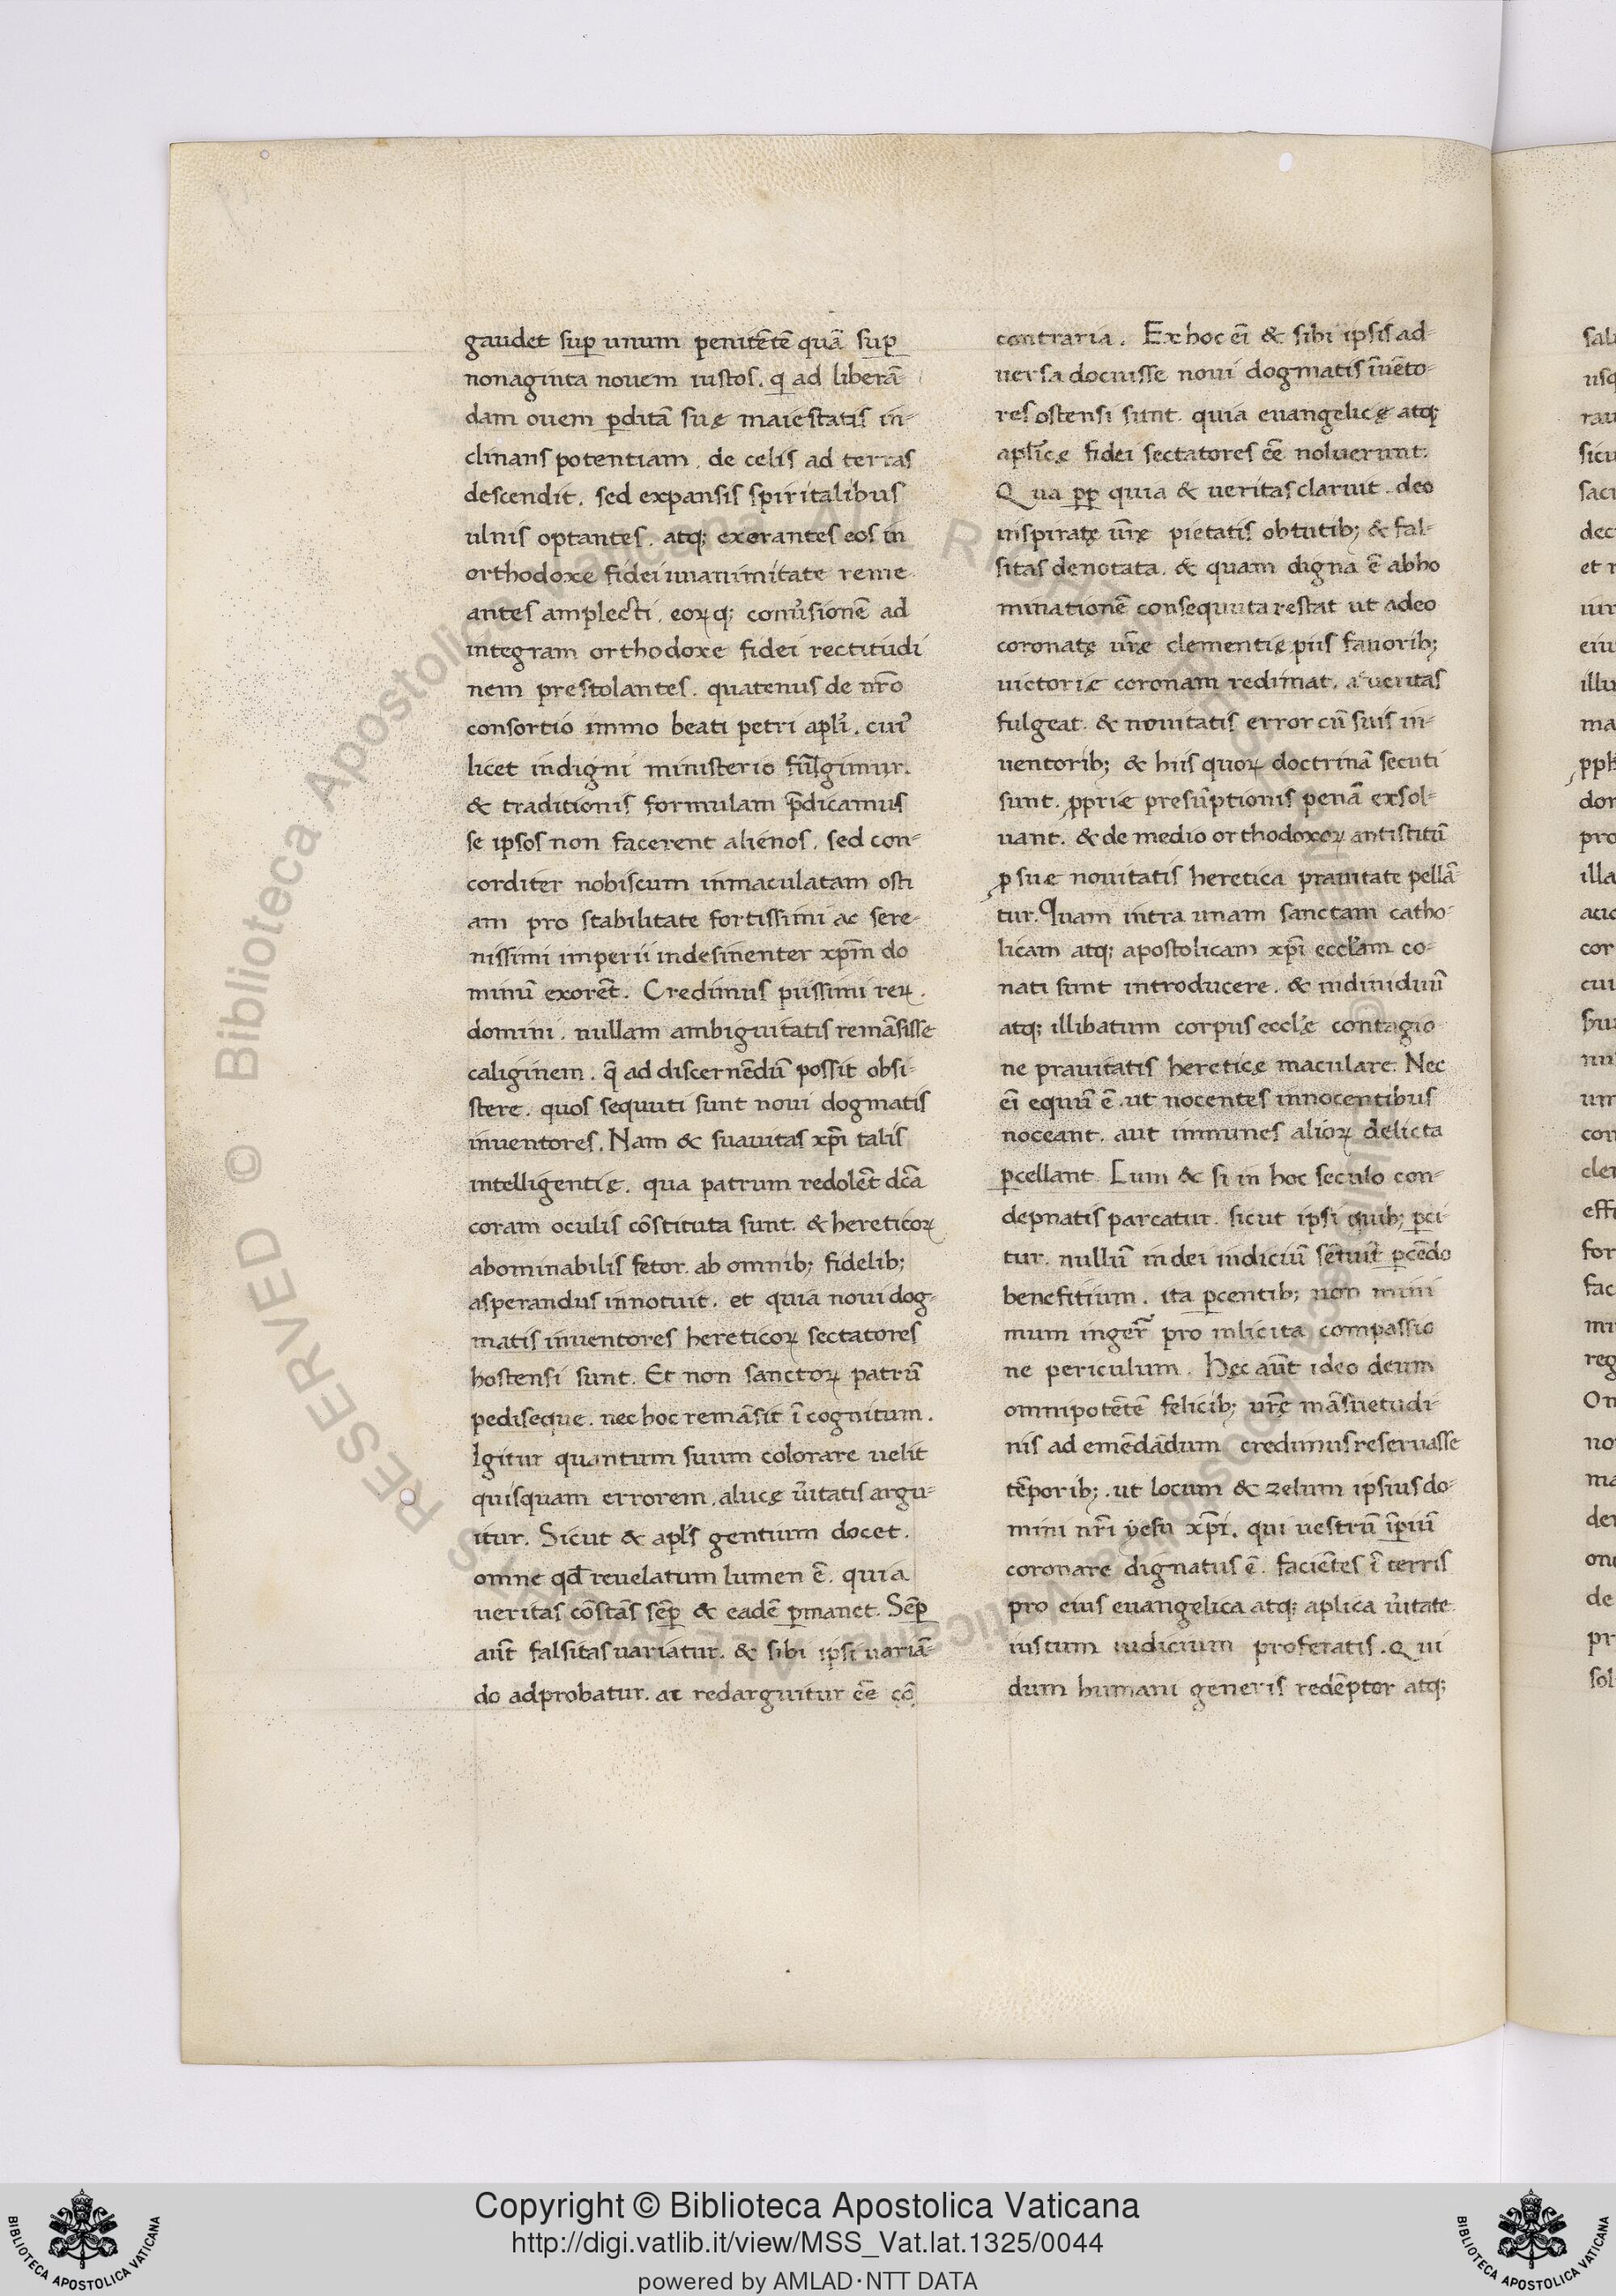 gaudet sup̱ unum penitẽtẽ quã sup̱
nonaginta nouem iustos. q̱ ad liberã
dam ouem p̱ditã suę maiestatis in-
clinans potentiam. de celis ad terras
descendit. sed expansis spiritalibus
ulnis optantes. atq; exorantes eos in
orthodoxe fidei unanimitate reme
antes amplecti. eoꝝq; conũsionẽ ad
integram orthodoxe fidei rectitudi
nem prestolantes. quatenus de nr̃o
consortio immo beati petri apl̃i. cui᾽
licet indigni ministerio fũgimur.
& traditionis formulam p̃dicamus
se ipsos non facerent alienos. sed con-
corditer nobiscum inmaculatam osti
am pro stabilitate fortissimi ac sere-
nissimi imperii indesinenter xp̃m do
minũ exorẽt. Credimus piissimi reꝝ.
domini. nullam ambiguitatis remãsisse
caliginem. q̃ ad discernẽdũ possit obsi-
stere. quos sequuti sunt noui dogmatis
inuentores. Nam & suauitas xp̃i talis
intelligentię. qua patrum redolẽt dc̃a
coram oculis cõstituta sunt. & hereticoꝝ
abominabilis fetor. ab omnib; fidelib;
asperandus innotuit. et quia noui dog-
matis inuentores hereticoꝝ sectatores
hostensi sunt. Et non sanctoꝝ patrũ
pediseque. nec hoc remãsit ĩcognitum.
Igitur quantum suum colorare uelit
quisquam errorem. aluce ũitatis argu-
itur. Sicut & apl̃s gentium docet.
omne qd̃ reuelatum lumen ẽ. quia
ueritas cõstãs sẽp̱ & eadẽ p̱manet. Sẽp̱
aũt falsitas uariatur. & sibi ipsi uariã-
do adprobatur. at redarguitur ẽe cõ
contraria. Ex hoc ẽi & sibi ipsis ad-
uersa docuisse noui dogmatis ĩuẽto-
res ostensi sunt. quia euangelicę atq;
apl̃icę fidei sectatores ẽe noluerunt.
Qua pp̱ quia & ueritas claruit. deo
inspiratę ũrę pietatis obtutib; & fal-
sitas denotata. & quam digna ẽ abho
minationẽ consequuta restat ut adeo
coronatę ur̃ę clementię piis fauorib;
uictorię coronam redimat. a ueritas
fulgeat. & nouitatis error cũ suis in-
uentorib; & hiis quoꝝ doctrinã secuti
sunt. ꝓprie presũptionis penã exsol-
uant. & de medio orthodoxoꝝ antistitũ
ꝓ suę nouitatis heretica prauitate pellã-
tur. Quam intra unam sanctam catho-
licam atq; apostolicam xp̃i eccl̃am co-
nati sunt introducere. & indiuiduũ
atq; illibatum corpus eccl̃ę contagio-
ne prauitatis hereticę maculare. Nec
ẽi equũ ẽ. ut nocentes innocentibus
noceant. aut inmunes alioꝝ delicta
p̱cellant. Cum & si in hoc seculo con-
depnatis parcatur. sicut ipsi quib; p̱ci-
tur. nullũ in dei iudiciũ sẽtiũt p̱cẽdo
benefitium. ita p̱centib; non mini
mum inger̃ pro inlicita compassio
ne periculum. Hęc aũt ideo deum
omnipotẽtẽ felicib; ur̃ę mãsuetudi-
nis ad emẽdãdum credimus reseruasse
tẽporib;. ut locum & zelum ipsius do-
mini nr̃i yesu xp̃i. qui uestrũ ĩp̱iũ
coronare dignatus ẽ. faciẽtes ĩ terris
pro eius euangelica atq; aplica ũitate
iustum iudicium proferatis. Qui
dum humani generis redẽptor atq;
Copyright © Biblioteca Apostolica Vaticana
http://digi.vatlib.it/view/MSS_Vat.lat.1325/0044
powered by AMLAD·NTT DATA
BIBLIOTECA APOSTOLICA VATICANA
BIBLIOTECA APOSTOLICA VATICANA